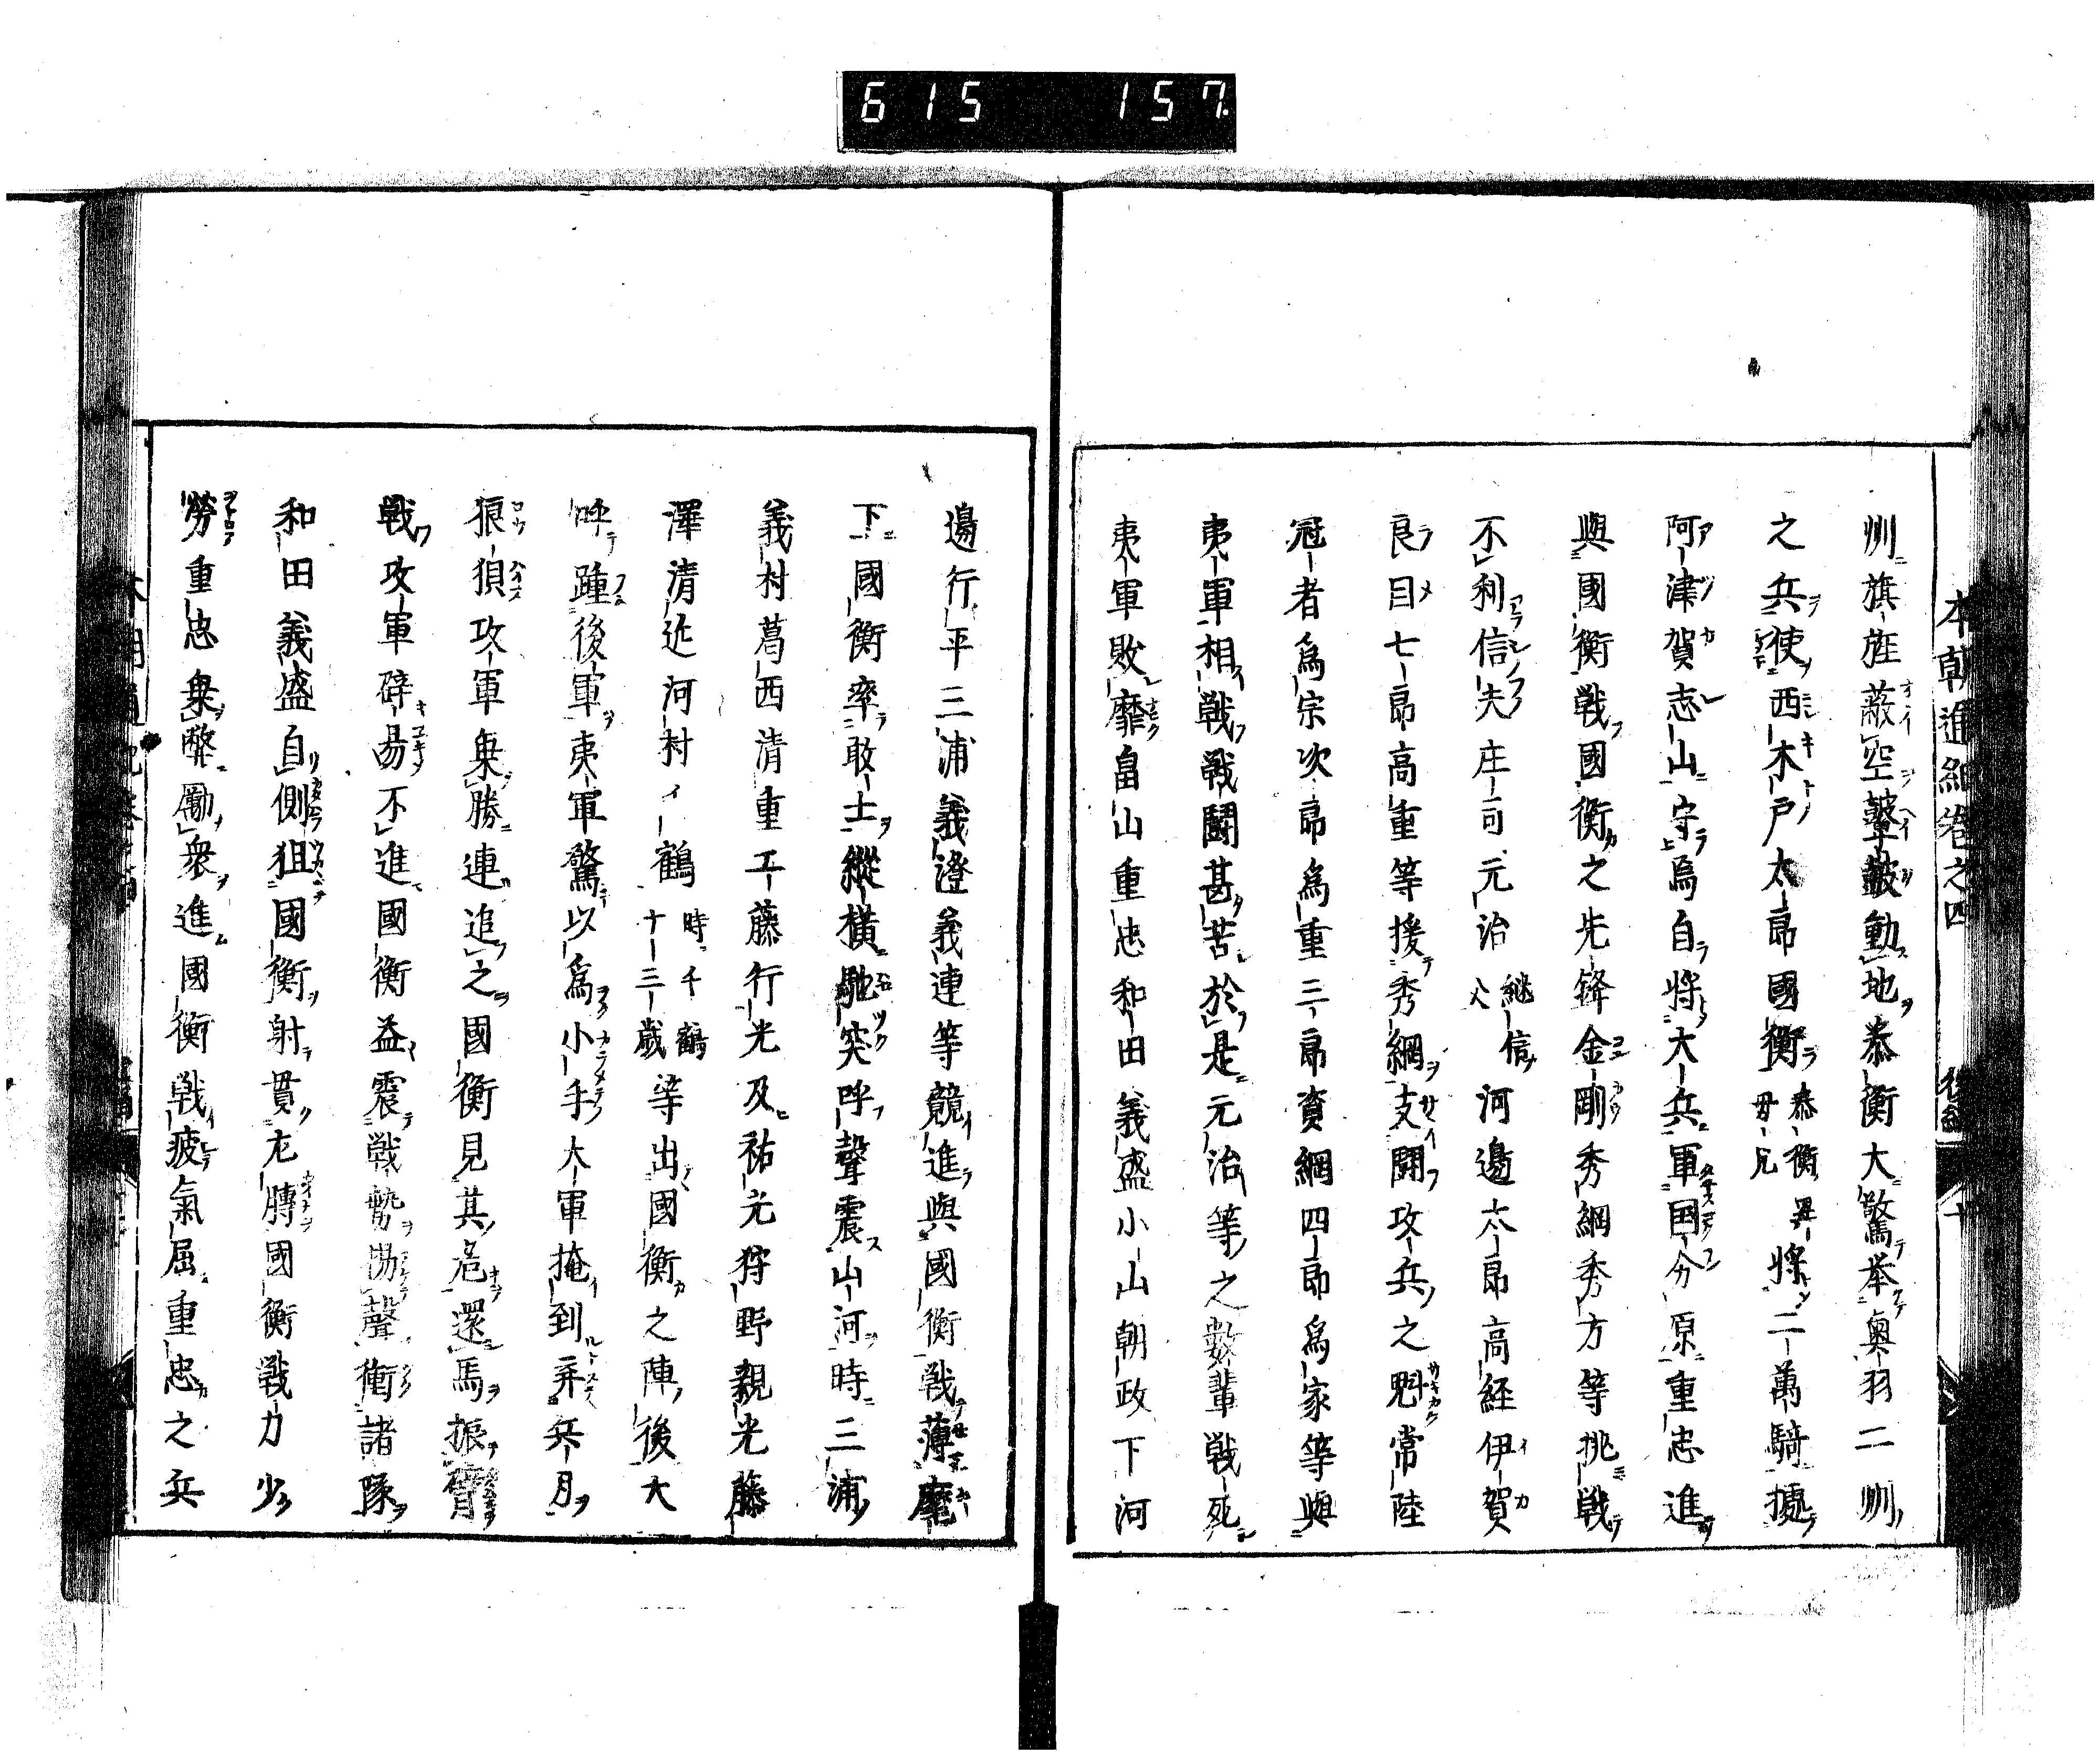 615 157
本朝通紀卷之四 後編 十
州旗旌蔽空鼙皷動地泰衡大驚挙奥羽二州
之兵使西木戸太郎國衡泰衡異毋兄將二萬騎據
阿津賀志山守焉自將大兵軍國分原重忠進
與國衡戦國衡之先鋒金剛秀綱秀方等挑戦
不利信夫庄司元治継信父河邉太郎高経伊賀
良目七郎高重等援秀綱支闘攻兵之魁常陸
冠者爲宗次郎爲重三郎資綱四郎爲家等與
夷軍相戦戦闘甚苦於是元治等之數輩戦死
夷軍敗靡畠山重忠和田義盛小山朝政下河
邊行平三浦義澄義連等競進與國衡戦薄麾
下國衡率敢士縱横馳突呼聲震山河時三浦
義村葛西清重工藤行光及祐光狩野親光藤
澤清近河村千鶴時千鶴十三歳等出國衡之陣後大
呼踵後軍夷軍驚以爲小手大軍掩到弃兵月
狼狽攻軍乗勝連追之國衡見其危還馬振臂
戦攻軍辟易不進國衡益震戦勢勵聲衝諸隊
和田義盛自側狙國衡射貫左膊國衡戦力少
勞重忠乗弊勵衆進國衡戦疲氣屈重忠之兵